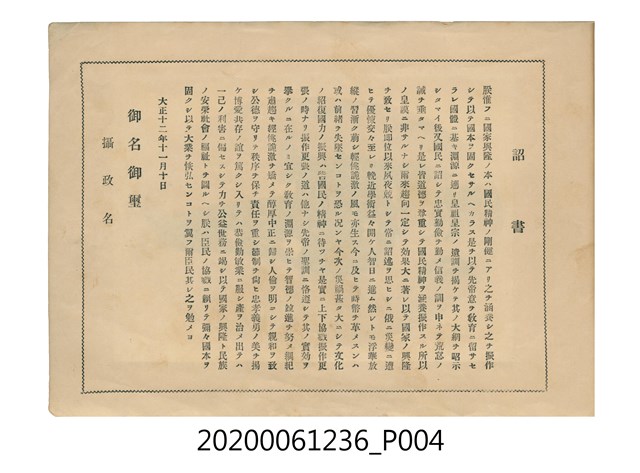 詔書
朕惟フニ國家興隆ノ本ハ國民精神ノ剛健ニアリ之ヲ涵養シ之ヲ振作
シテ以テ國本ヲ固クセサルヘカラス是ヲ以テ先帝意ヲ敎育ニ留サセ
ラレ國體ニ基キ淵源ニ遡リ皇祖皇宗ノ遺訓ヲ掲ケテ其ノ大綱ヲ昭示
シタマイ後又臣民ニ詔シテ忠實勤儉ヲ勸メ信義ノ訓ヲ申ネテ荒怠ノ
誡ヲ垂タマヘリ是レ皆道德ヲ尊重シテ國民精神ヲ涵養振作スル所以
ノ皇謨ニ非サルナシ爾來趨向一定シテ效果大ニ著レ以テ國家ノ興隆
ヲ致セリ朕卽位以來夙夜兢トシテ常ニ詔述ヲ思ヒシニ俄ニ災變ニ遭
ヒテ憂悚交々至レリ輓近學術益々開ケ人智日ニ進ム然レトモ浮華放
縱ノ習漸ク萠シ輕佻詭激ノ風モ亦生ス今ニ及ヒテ時弊ヲ革メスンハ
或ハ前緖ヲ失墜センコトヲ恐ル況ンヤ今次ノ災禍甚タ大ニシテ文化
ノ紹復國力ノ振興ハ皆國民ノ精神ニ待ツヲヤ是實ニ上下協戮振作更
張ノ時ナリ振作更張ノ道ハ他ナシ先帝ノ聖訓ニ恪遵シテ其ノ實效ヲ
擧クルニ在ルノミ宜シク敎育ノ淵源ヲ崇ヒテ智德ノ竝進ヲ努メ綱紀
ヲ肅正シ輕佻詭激ヲ矯メ醇厚中正ニ歸シ人倫ヲ明ニシテ親和ヲ致
シ公德ヲ守リテ秩序ヲ保チ責任ヲ重シ節制ヲ尙ヒ忠孝義勇ノ美ヲ揚
ケ博愛共存ノ誼ヲ篤クシ入リテハ恭儉勤敏業ニ服シ產ヲ治メ出テハ
一己ノ利害ニ偏セスシテ力ヲ公益世務ニ竭シ以テ國家ノ興隆ト民族
ノ安榮社會ノ福祉トヲ圖ルヘシ朕ハ臣民ノ協戮ニ賴リテ彌々國本ヲ
固クシ以テ大業ヲ恢弘センコトヲ冀フ爾臣民其レ之ヲ勉メヨ
大正十二年十一月十日
御名御璽
攝政名
20200061236_P004